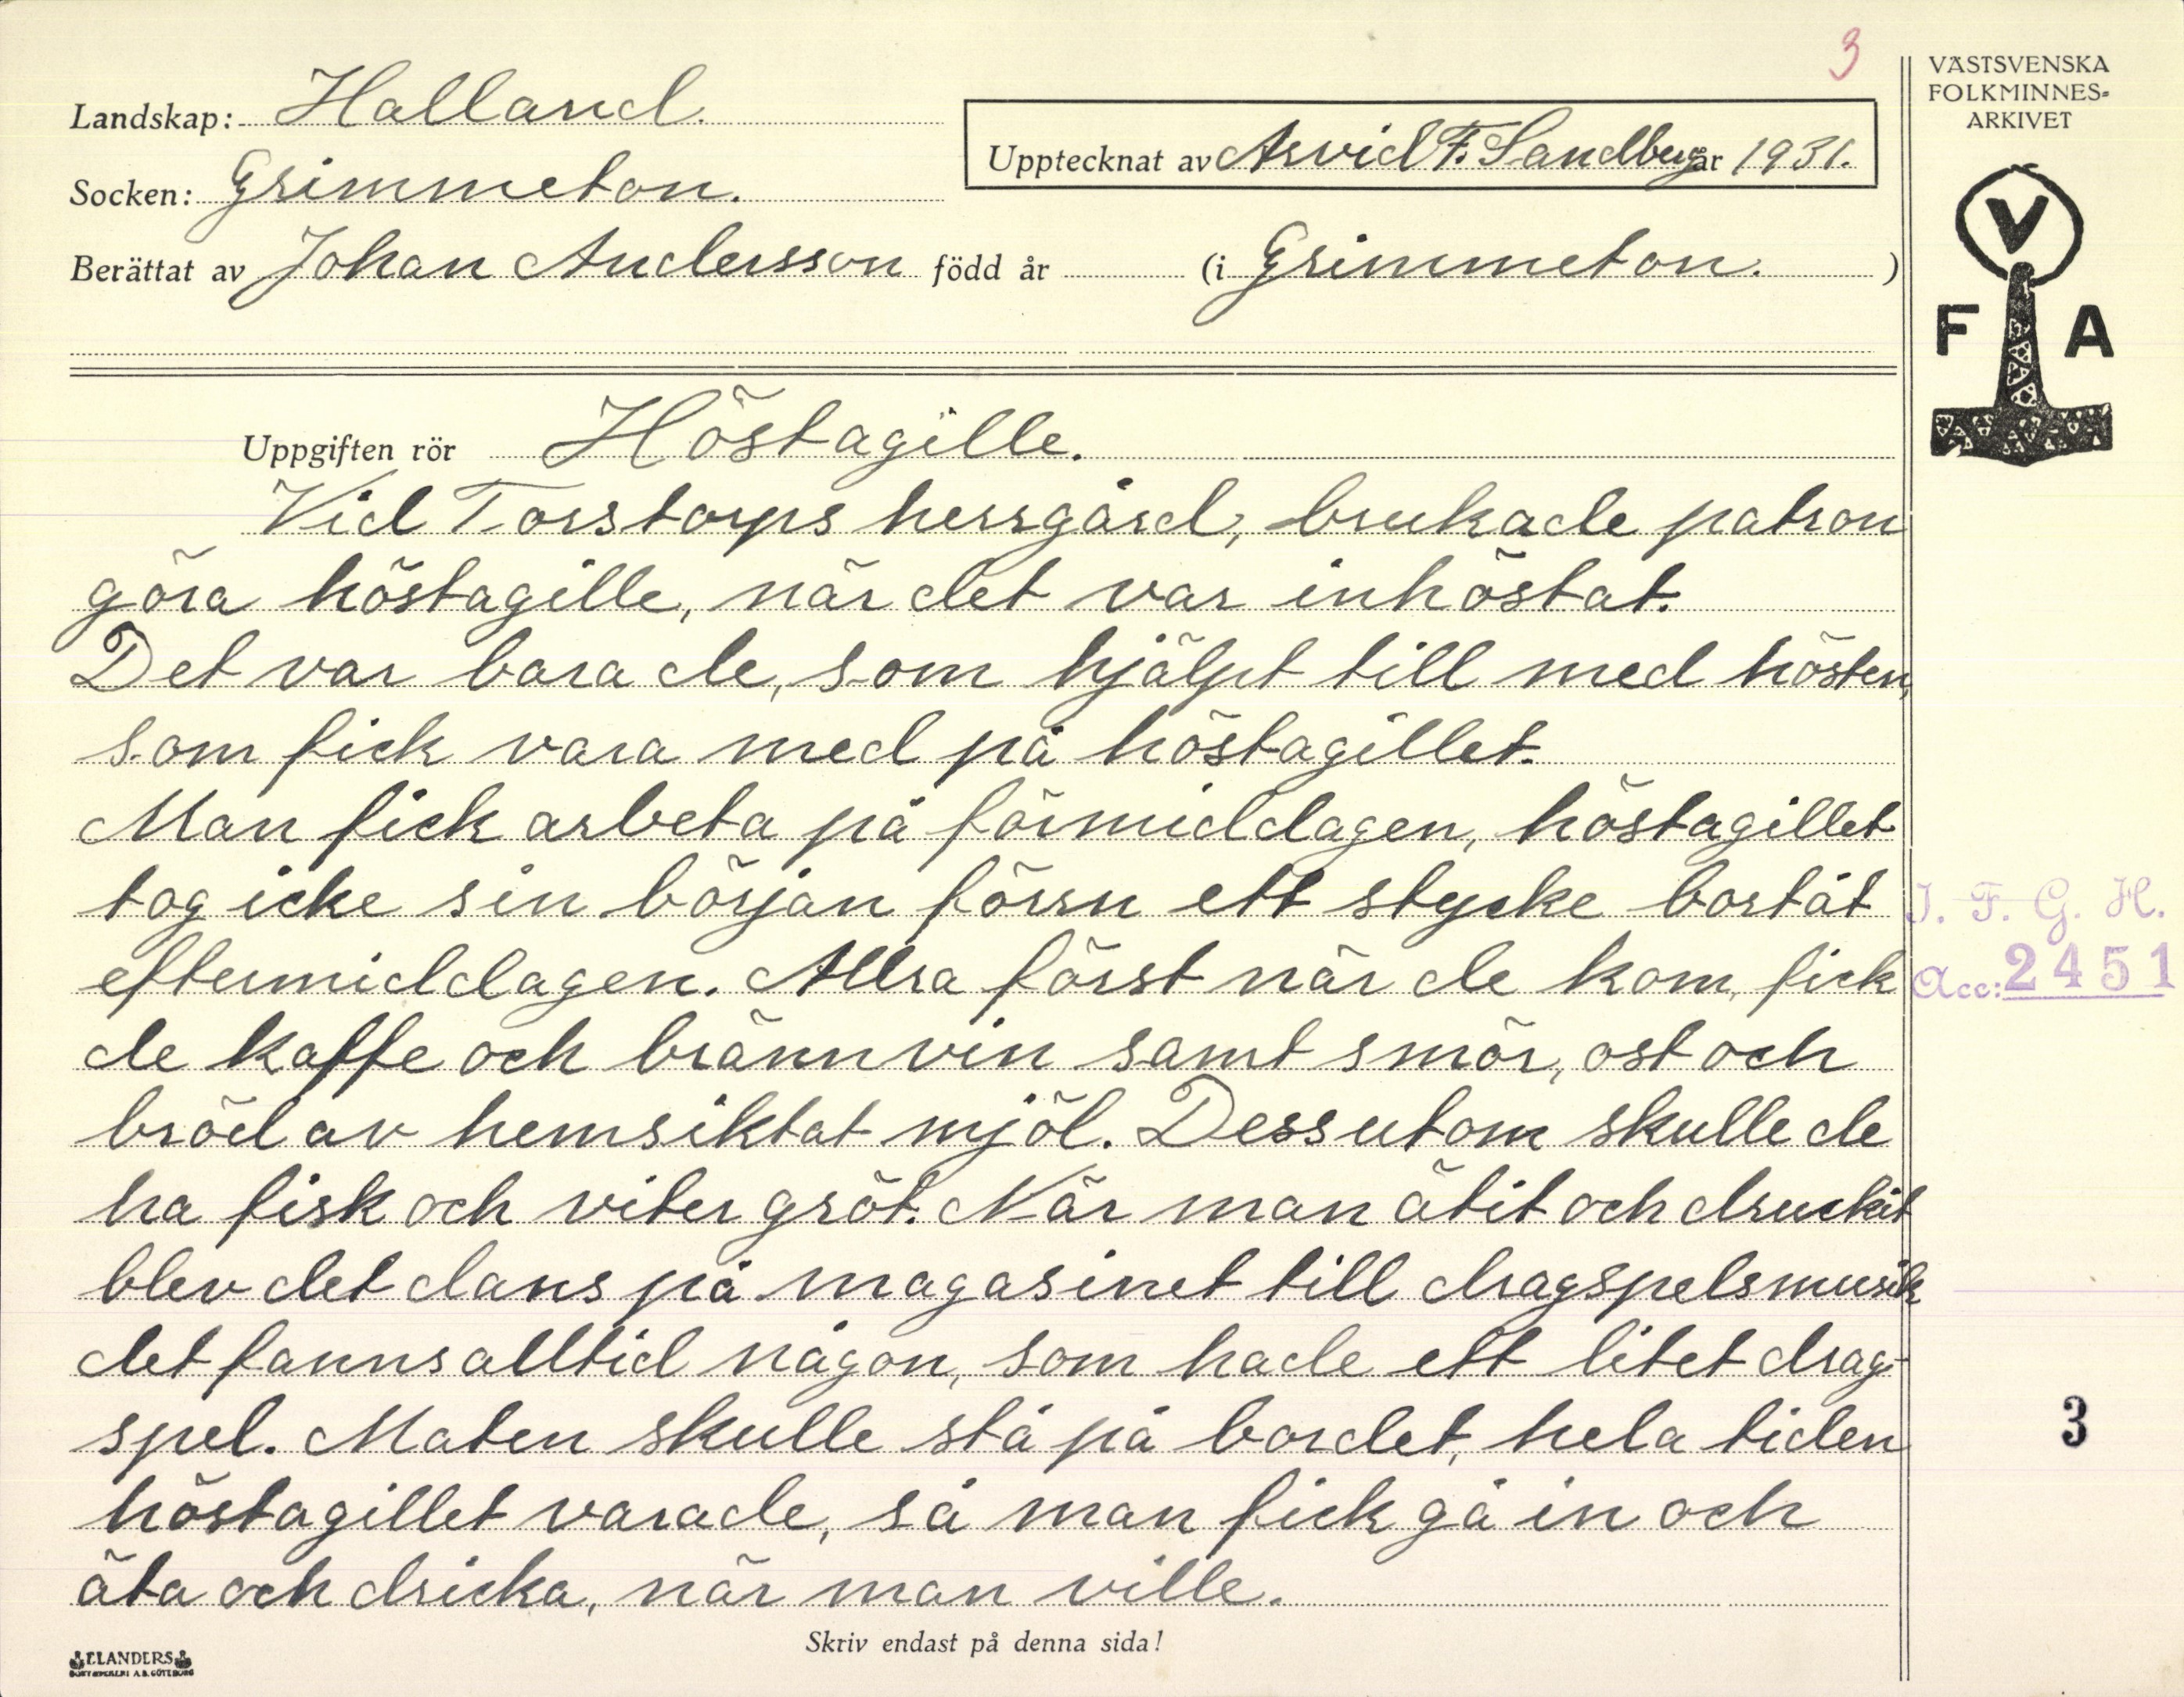 3
Landskap: Halland.
Upptecknat av Arvid F. Sandberg år 1931.
Socken: Grimmeton.
Berättat av Johan Andersson född år (i Grimmeton. )
VÄSTSVENSKA
FOLKMINNES-
ARKIVET
V
F A
Uppgiften rör Höstagille.
Vid Torstorps herrgård, brukade patron
göra höstagille, när det var inhöstat.
Det var bara de, som hjälpt till med hösten,
som fick vara med på höstagillet.
Man fick arbeta på förmiddagen, höstagillet
tog icke sin början förrn ett stycke bortåt
eftermiddagen. Allra först när de kom, fick
de kaffe och brännvin samt smör, ost och
bröd av hemsiktat mjöl. Dessutom skulle de
ha fisk och viter gröt. När man ätit och druckit
blev det dans på magasinet till dragspelsmusik
det fanns alltid någon, som hade ett litet drag-
spel. Maten skulle stå på bordet, hela tiden
höstagillet varade, så man fick gå in och
äta och dricka, när man ville.
I. F. G. H.
Acc: 2451
3
Skriv endast på denna sida!
ELANDERS
BOKTRYCKERI A.B. GÖTEBORG